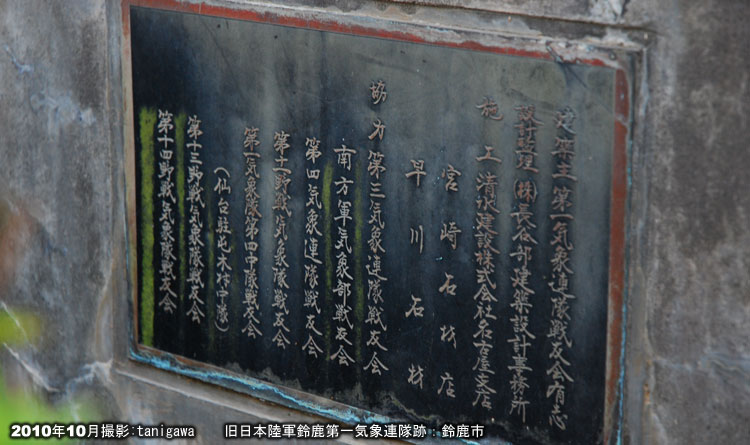 建築主 第一気象連隊戦友会有志
設計監理 (株)長谷部建築設計事務所
施工 清水建設株式会社名古屋支店
宮崎石材店
早川石材
協力 第三気象連隊戦友会
南方軍気象部戦友会
第四気象連隊戦友会
第十一野戦気象隊戦友会
第一気象隊第四中隊戦友会
(仙台駐屯木村中隊)
第十三野戦気象隊戦友会
第十四野戦気象隊戦友会
2010年10月撮影:tanigawa 旧日本陸軍鈴鹿第一気象連隊跡:鈴鹿市